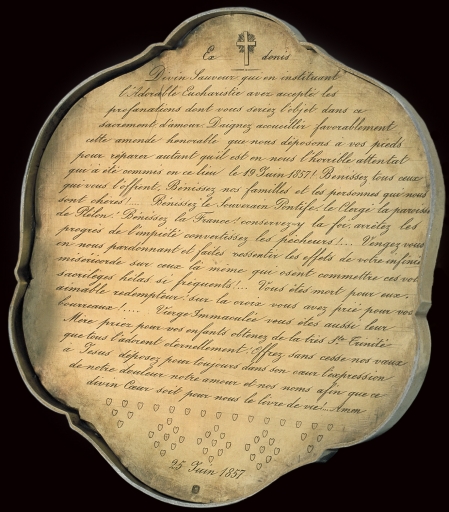 Ex donis
Divin Sauveur qui en instituant
l'Adorable Eucharistie avez accepté les
profanations dont vous seriez l'objet dans ce
sacrement d'amour Daignez accueillir favorablement
cette amende honorable que nous déposons a vos pieds
pour réparer autant qu'il est en nous l'horrible attentat
qui a été commis en ce lieu le 19 Juin 1857! Bénissez tous ceux
qui vous l'offrent, Bénissez nos familles et les personnes qui nous
sont chères!... Bénissez le Souverain Pontife! le Clergé la paroisse
de Plélon! Bénissez la France! conservez-y la foi, arrêtez les
progrès de l'impiété convertissez les pécheurs!... Vengez vous
en nous pardonnant et faites ressentir les effets de votre infinie
miséricorde sur ceux la même qui osent commettre ces vols
sacrilèges hélas si fréquents!... Vous êtes mort pour eux.
aimable redempteur! sur la croix vous avez prié pour vos
bourreaux!.... Vierge Immaculée vous êtes aussi leur
Mère priez pour vos enfants obtenez de la très Ste Trinité
que tous l'adorent éternellement! Offrez sans cesse nos vœux
à Jésus déposez pour toujours dans son cœur l'expression
de notre douleur notre amour et nos noms afin que ce
divin Cœur soit pour nous le livre de vie!... Amen
25 Juin 1857